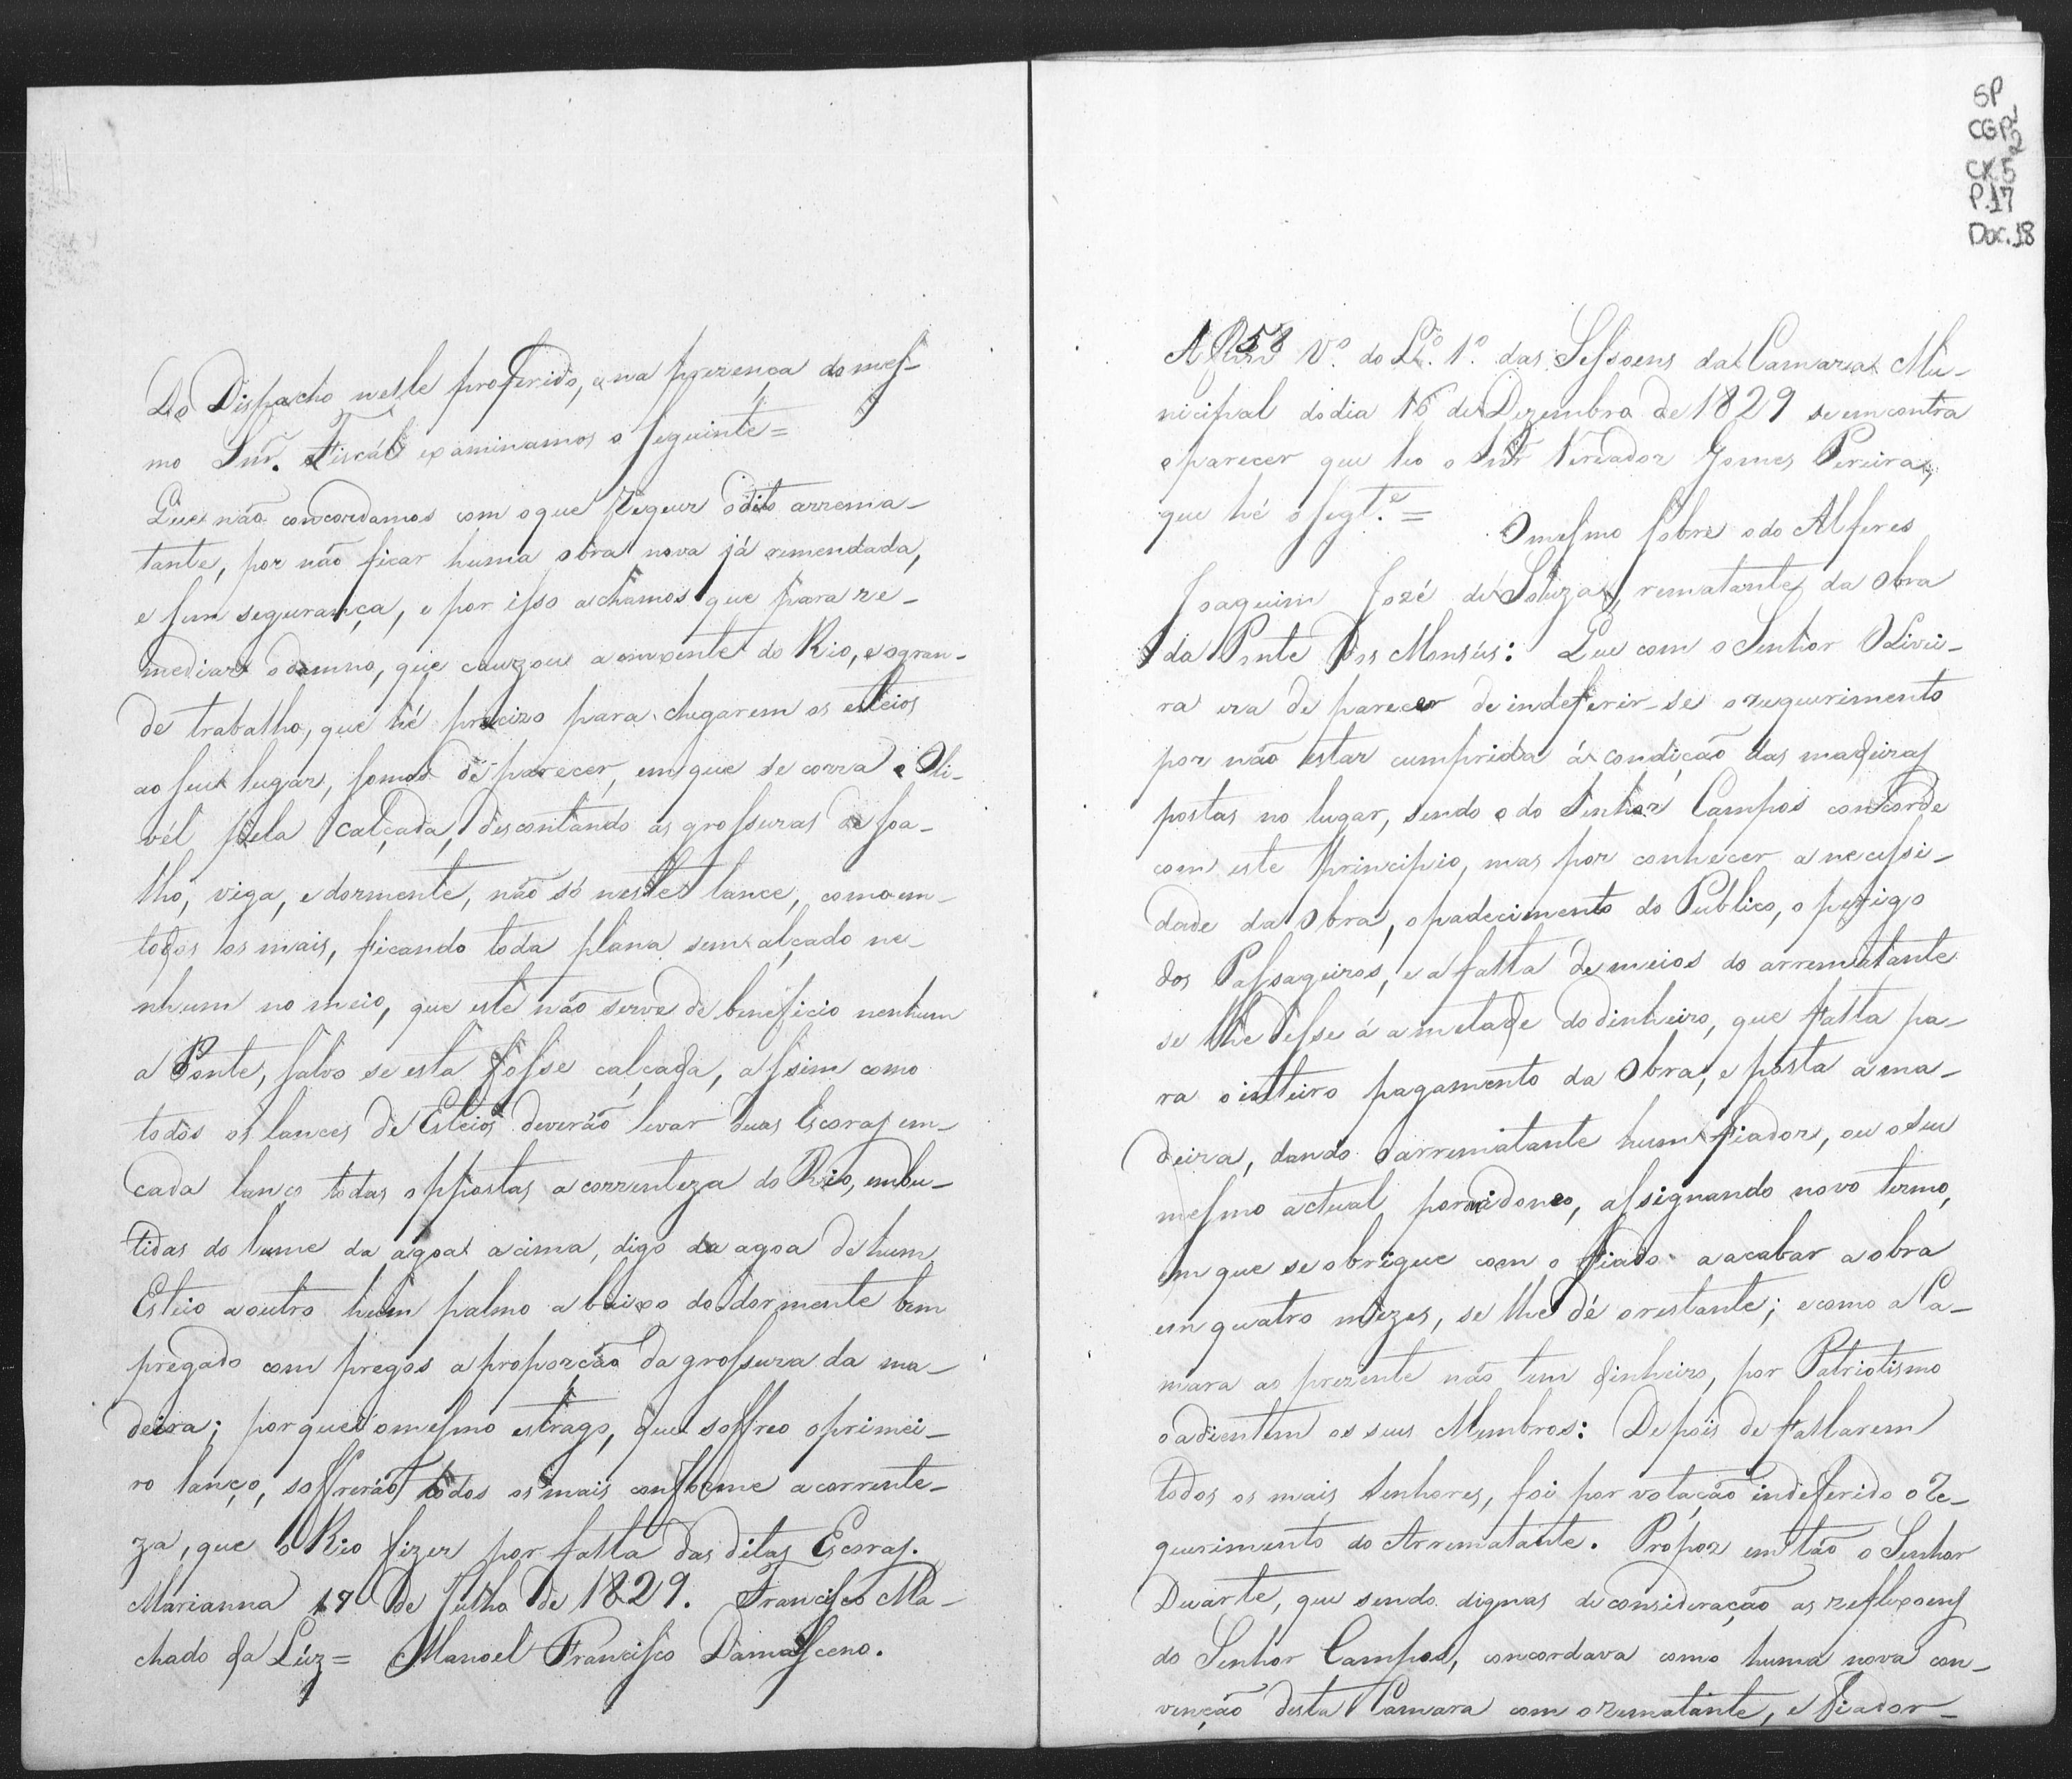 Do Dispacho nesse proferido, e na prezença do mes-
mo Snr. Fiscál examinamos o seguinte =
Que não concordamos com o que requer o dito arrema-
tante, por não ficar huma obra nova já remendada,
e sem segurança, e por isso achamos que para re-
mediar o damno, que cauzou a enxente do Rio, e o gran-
de trabalho, que hé precizo para chegarem os esteios
ao seu lugar, somos de parecer, em que se corra o Ni-
vél pela calçada, descontando as grossuras de soa-
lho, viga, e dormente, não só neste lance, como em
todos os mais, ficando toda plana sem alçado ne-
nhum no meio, que este não serve de beneficio nenhum
a Ponte, salvo se esta fosse calçada, assim como
todos os lances de Esteios deverão levar duas Escoras em
cada lanço todas oppostas a correnteza do Rio, embu-
tidas do lume da agoa acima, digo da agoa de hum
Esteio a outro hum palmo abaixo do dormente bem
pregado com pregos a proporção da grossura da ma-
deira; porque o mesmo estrago, que soffreo o primei-
ro lanço, soffrerão todos os mais conforme a corrente-
za, que o Rio fizer por falta das ditas Escoras.
Marianna 17 de Julho de 1829. Francisco Ma-
chado da Lúz = Manoel Francisco Damasceno.
SP
CGP2
CX.5
P.17
Doc.18
A 58 Vº do Lº 1º das Sessoens da Camara Mu-
nicipal do dia 16 de Dezembro de 1829 se encontra
o parecer que leo o Snr Vereador Gomes Pereira,
que hé o segt.e =
O mesmo sobre o do Alferes
Joaquim Jozé de Souza, rematante da obra
da Ponte dos Monsús: Que com o Senhor Olivei-
ra era de parecer de indeferir-se o requerimento
por não estar cumprida á condição das madeiras
postas no lugar, sendo o do Senhor Campos concorde
com este principio, mas por conhecer a necessi-
dade da obra, o padecimento do Publico, o perigo
dos Passageiros, e a falta de meios do arrematante
se lhe desse á ametade do dinheiro, que falta pa-
ra o inteiro pagamento da Obra, e posta a ma-
deira, dando o arrematante hum fiador, ou o seu
mesmo actual, idoneo, assignando novo termo,
em que se obrigue com o fiado a acabar a obra
em quatro mezes, se lhe dé o restante; e como a Ca-
mara ao prezente não tem dinheiro, por Patriotismo
o adientem os seus Membros: Depois de fallarem
todos os mais Senhores, foi por votação indeferido o Re-
querimento do Arrematante. Propoz então o Senhor
Duarte, que sendo dignas de consideração as reflexoens
do Senhor Campos, concordava como huma nova con-
venção desta Camara com o rematante, e Fiador-